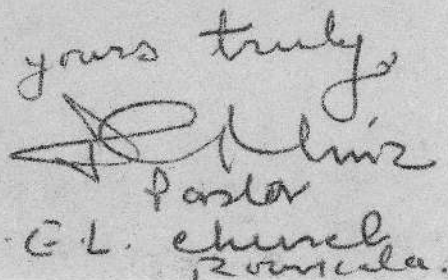 yours truly,
Pastor
G.E.L. church
Rourkela